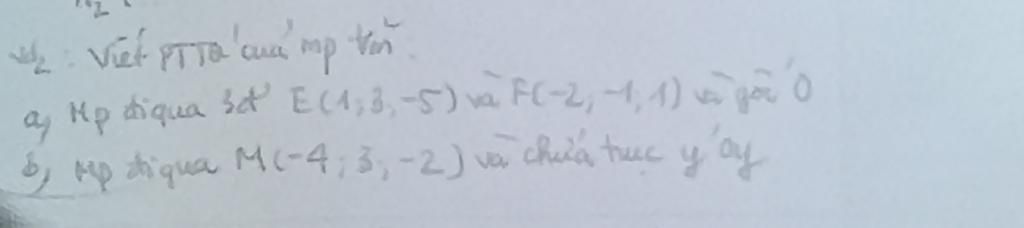 Vd2: Viết PTTQ của mp
a, Mp đi qua 3đ' E(1; 3; -5) và F(-2; -1; 1) và gốc O
b, Mp đi qua M(-4; 3; -2) và chứa trục y'Oy